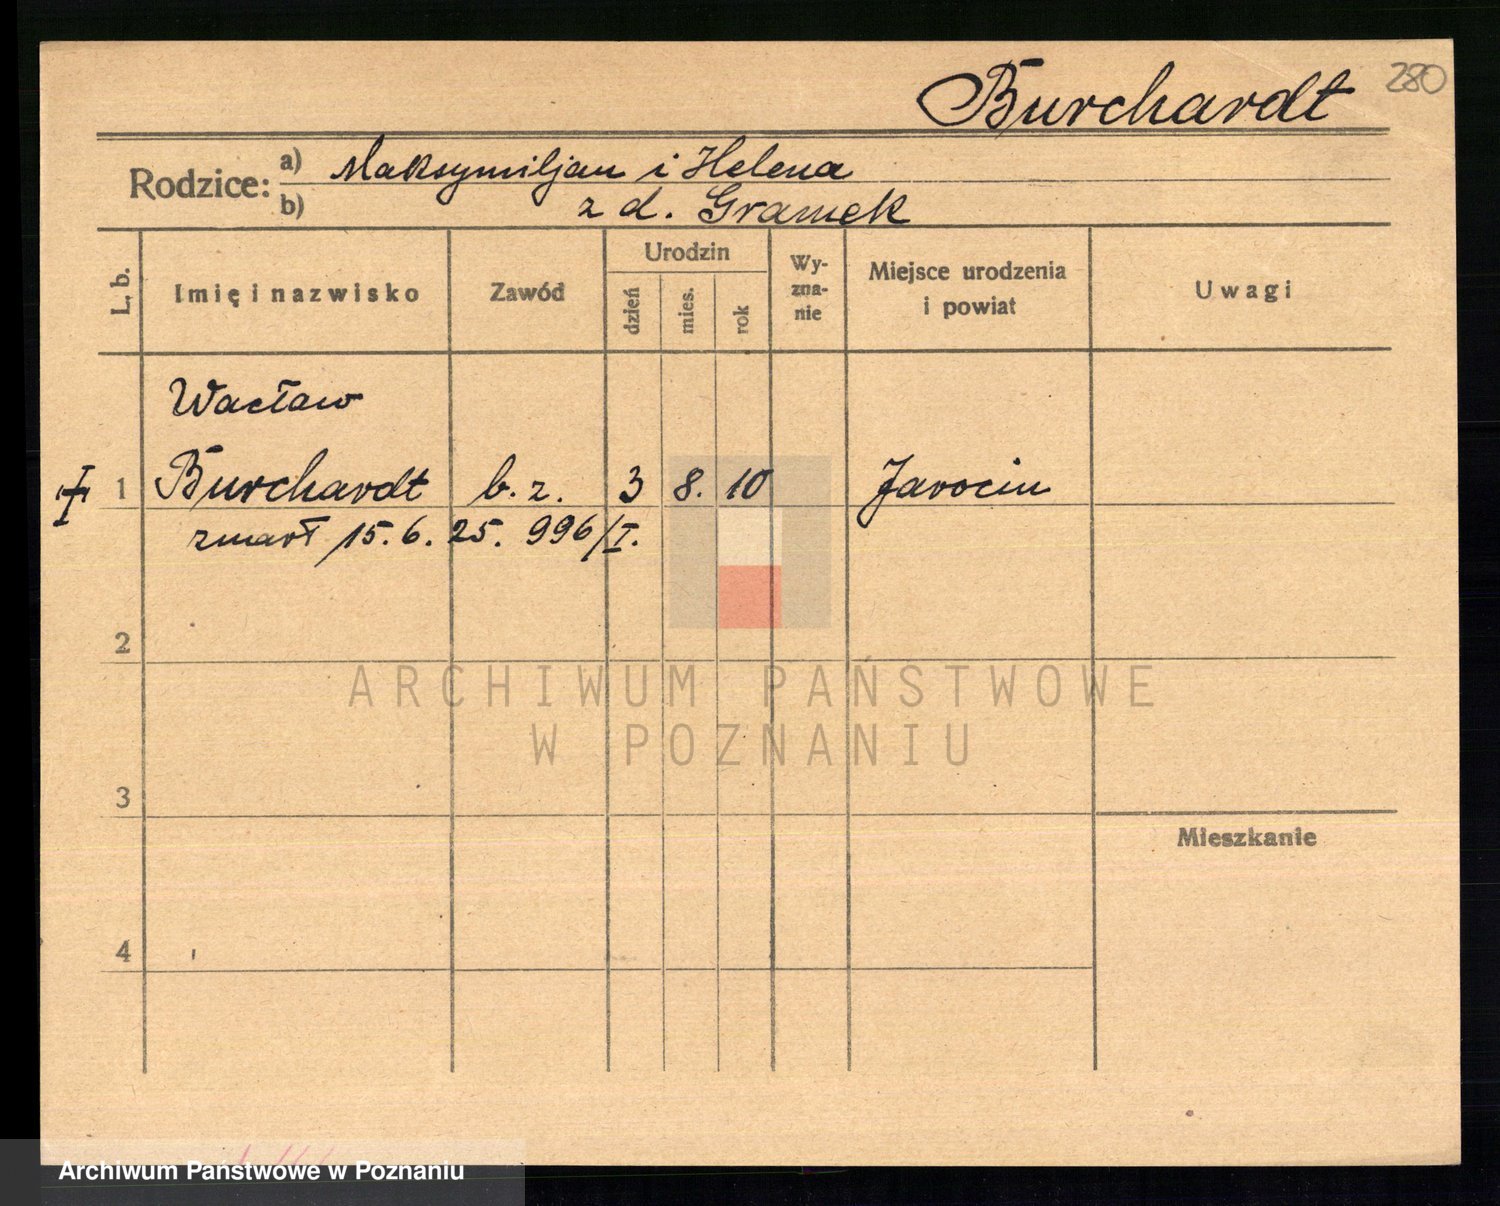 280
Burchardt
Rodzice:
a) Maksymiljan i Helena
b) z d. Gramek
L. b.
Imię i nazwisko
Zawód
Urodzin
dzień
mies.
rok
Wy-
zna-
nie
Miejsce urodzenia
i powiat
Uwagi
Wacław
1 Burchardt b. z. 3 8. 10 Jarocin
zmarł 15. 6. 25. 996/I.
2
3
4
Mieszkanie
ARCHIWUM PAŃSTWOWE
W POZNANIU
Archiwum Państwowe w Poznaniu